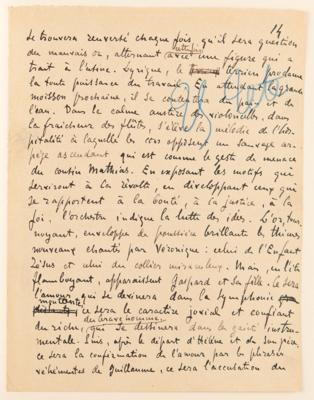 14
se trouvera renversé chaque fois, qu'il sera question
du mauvais or, alternant avec une figure qui a
trait à l'usine. Lyrique, le terrien proclame
la toute puissance du travail. En attendant la grande
moisson prochaine, il se contentera du pain et de
l'eau. Dans le calme austère des violoncelles, dans
la fraîcheur des flûtes, s'élève la mélodie de l'hos-
pitalité à laquelle les cors opposent un sauvage ar-
pège ascendant qui est comme le geste de menace
du cousin Mathias. En exposant les motifs qui
serviront à la révolte, en développant ceux qui
se rapportent à la bonté, à la justice, à la
foi, l'orchestre indique la lutte des idées. L'or, tour-
noyant, enveloppe de poussière brillante les thèmes
nouveaux chantés par Véronique : celui de l'Enfant
Jésus et celui du collier miraculeux. Mais, en l'été
flamboyant, apparaissent Gaspard et sa fille. Ce sera
l'amour qui se devinera dans la symphonie
ce sera le caractère jovial et confiant
du brave homme
du riche, qui se dessinera dans la gaîté instru-
mentale. Puis, après le départ d'Hélène et de son père,
ce sera la confirmation de l'amour par les phrases
véhémentes de Guillaume, ce sera l'accusation du